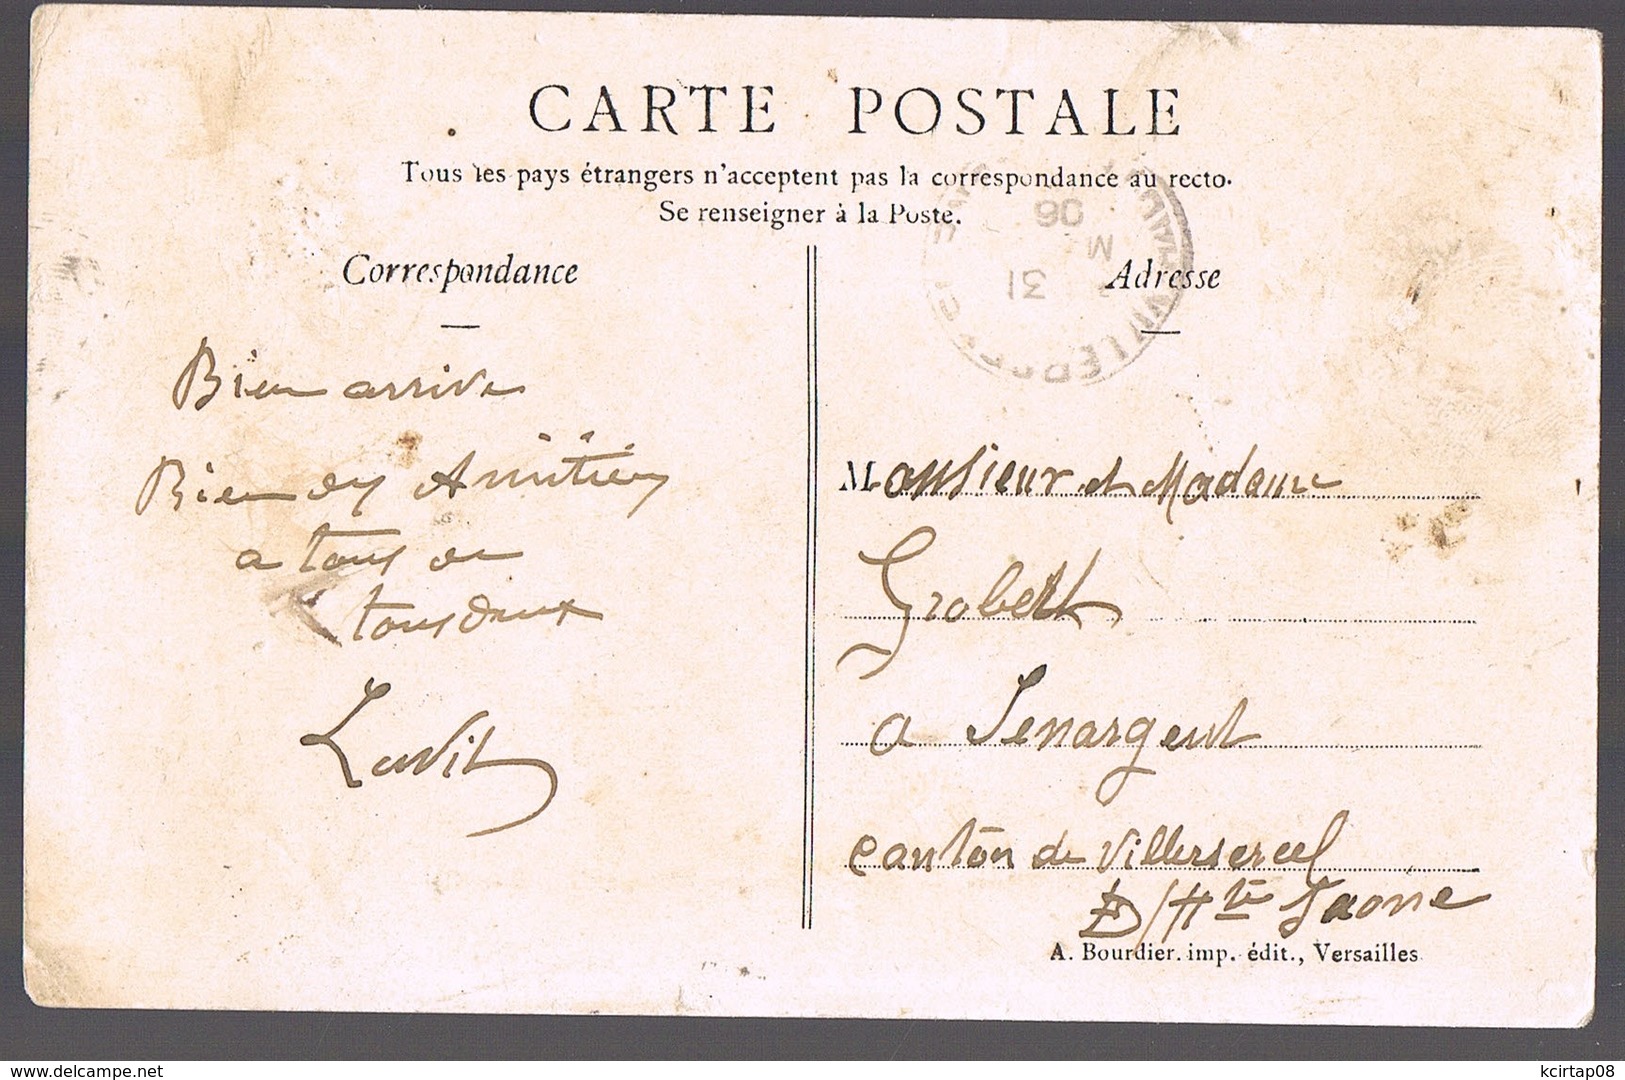 CARTE POSTALE
Tous les pays étrangers n'acceptent pas la correspondance au recto.
Se renseigner à la Poste.
Correspondance
Adresse
31
M
06
Bien arrive
Bien des Amitiés
a tous de
tous deux
Monsieur et Madame
Grobert
a Senargent
Canton de Villersexel
D/Hte Saone
A. Bourdier. imp. édit., Versailles
www.delcampe.net
kcirtap08